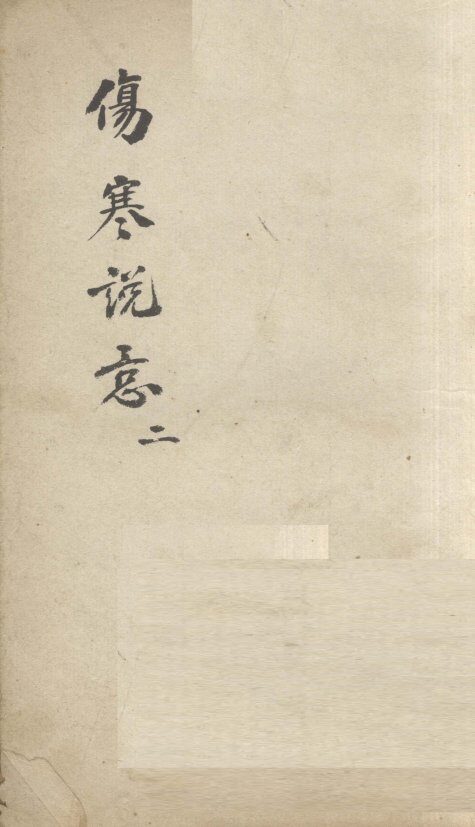 傷寒說意
二